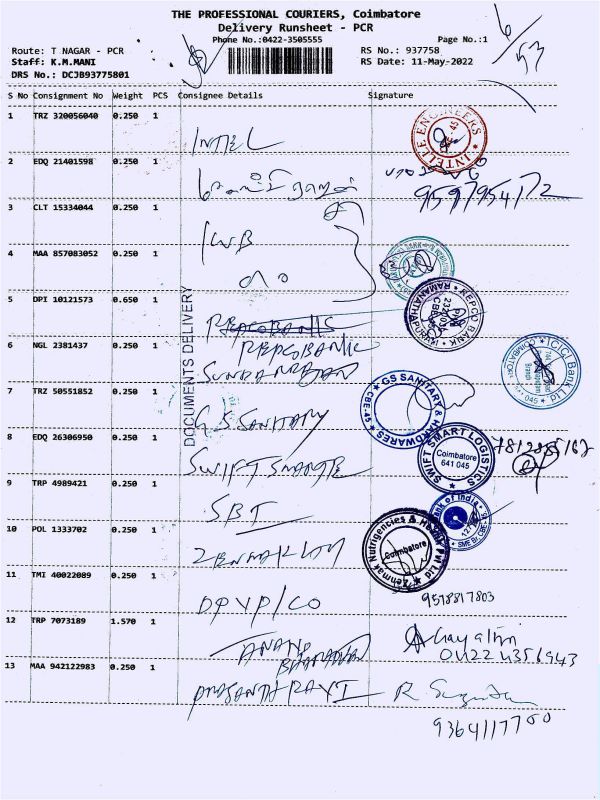 THE PROFESSIONAL COURIERS, Coimbatore
Delivery Runsheet - PCR
Phone No.:0422-3505555
Page No.:1
6/53
Route: T NAGAR - PCR
RS No.: 937758
Staff: K.M.MANI
RS Date: 11-May-2022
DRS No.: DCJB93775801
S No Consignment No Weight PCS Consignee Details Signature
1 TRZ 320056040 0.250 1
INTEL
INTELLE ENGINEERS
2 EDQ 21401598 0.250 1
9597954172
3 CLT 15334044 0.250 1
IWB
4 MAA 857083052 0.250 1
5 DPI 10121573 0.650 1
REPCO BANK
RAMANATHAPURAM
DOCUMENTS DELIVERY
REPCOBANK
6 NGL 2381437 0.250 1
REPCOBANK
ICICI Bank Ltd
7 TRZ 50551852 0.250 1
GS SANITARY
GS SANITARY & HARDWARES
CBE-45
8 EDQ 26306950 0.250 1
SWIFT SMART LOGISTICS
Coimbatore
641 045
9 TRP 4989421 0.250 1
SBI
10 POL 1333702 0.250 1
Coimbatore
11 TMI 40022089 0.250 1
9518817803
DPVP/CO
12 TRP 7073189 1.570 1
ANAND
0422 4356943
13 MAA 942122983 0.250 1
PRASANTH RAVI
9364117700